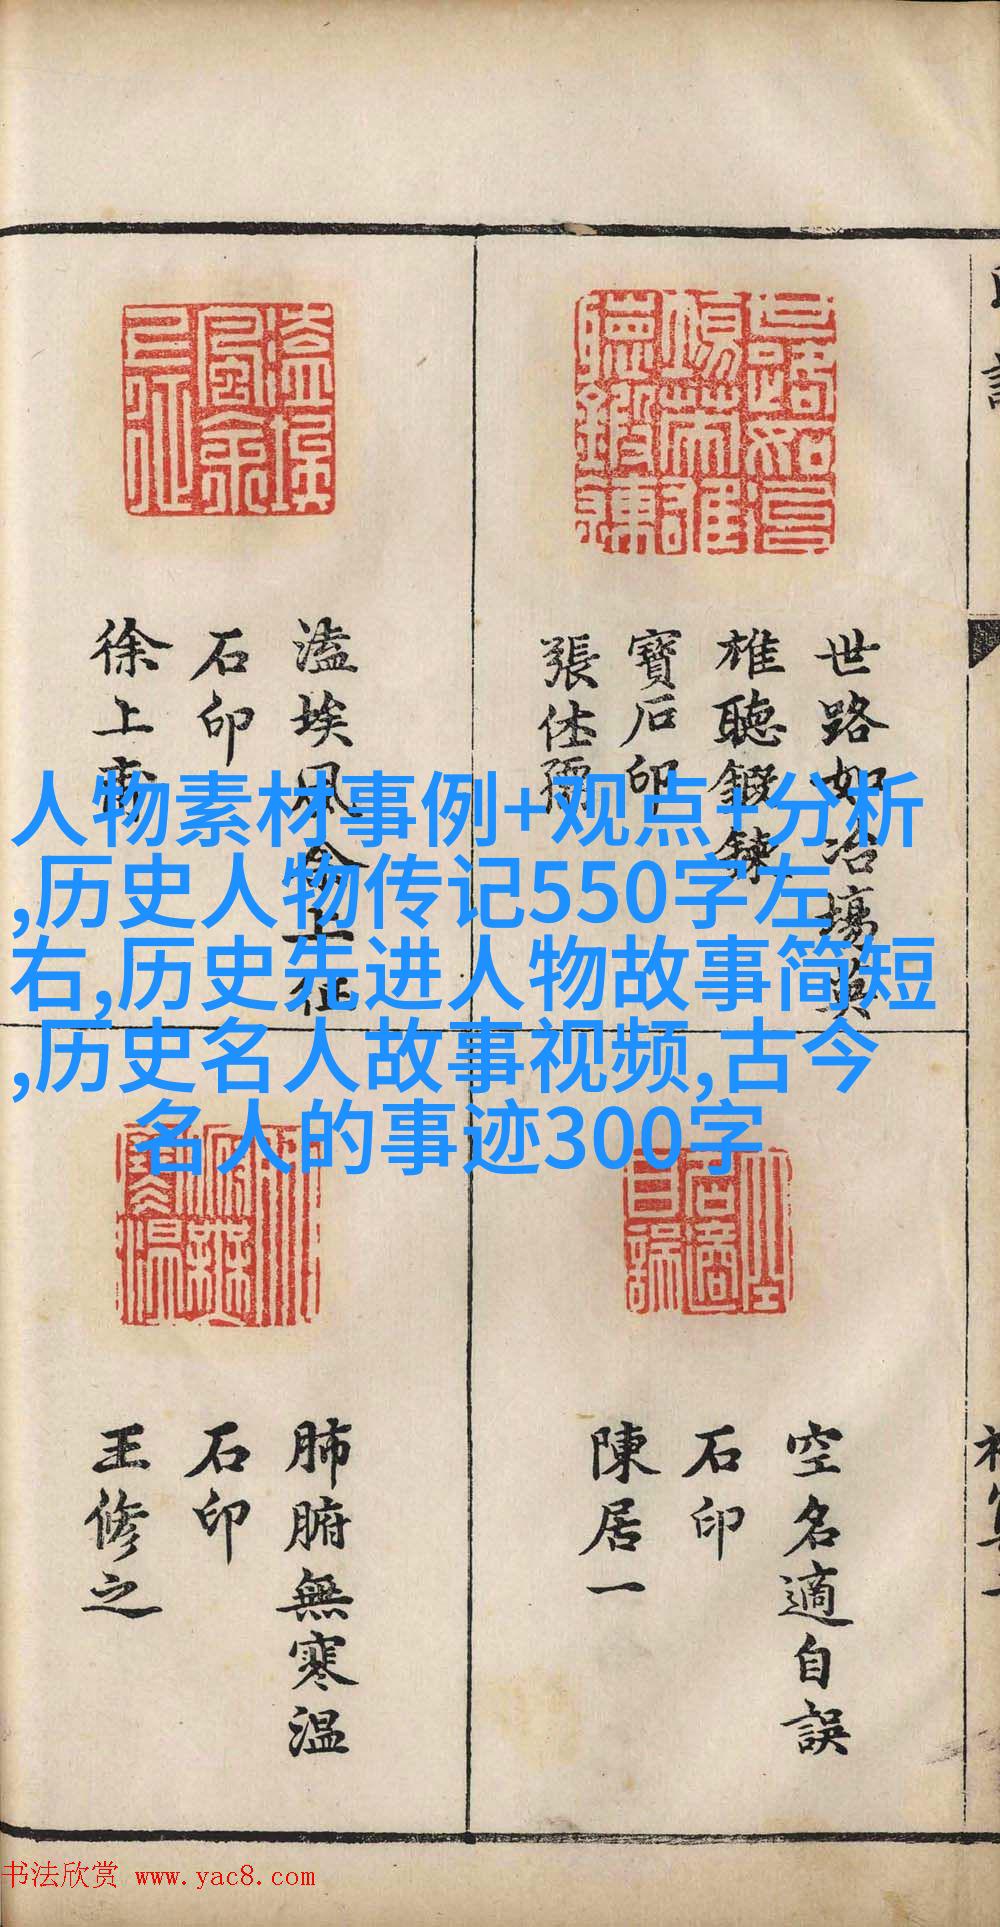 世路如冶場英
雄聽鍛鍊
寶石印
張
溘埃風余上征
石印
徐上
人物素材事例+观点+分析
,历史人物传记550字左
右,历史先进人物故事简短
,历史名人故事视频,古今
名人的事迹300字
空名適自誤
石印
陳居一
肺腑無寒溫
石印
王修之
书法欣赏 www.yac8.com